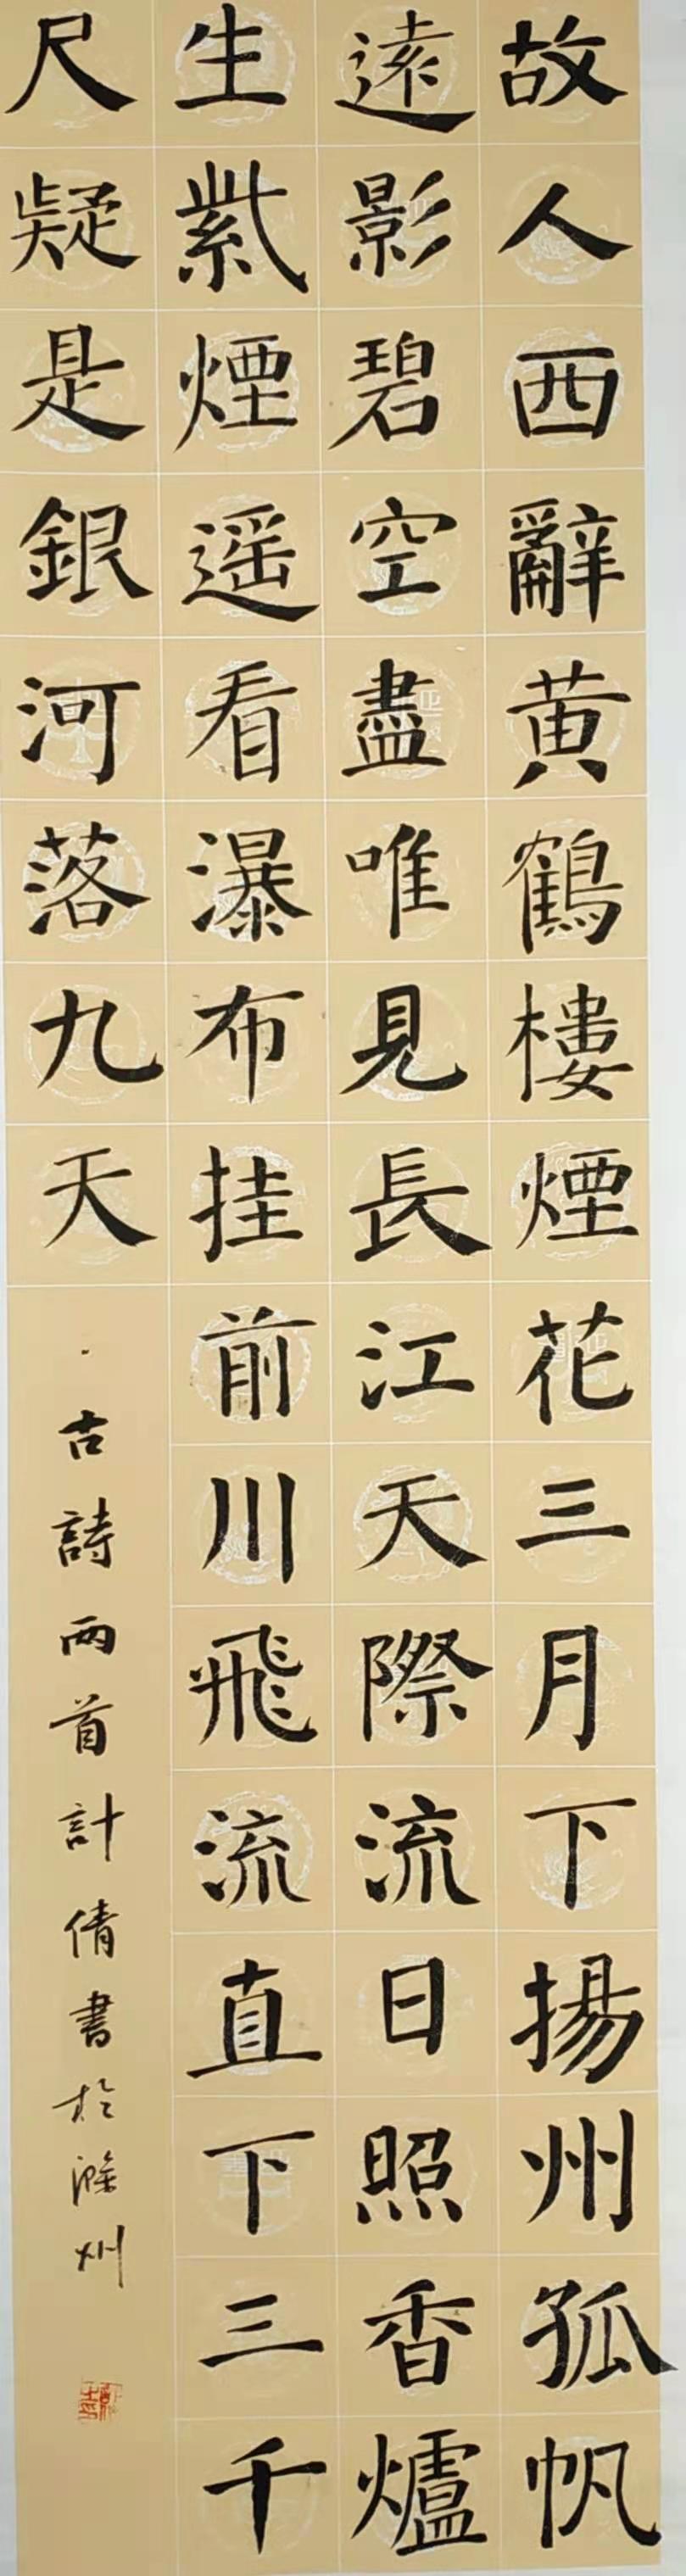 故人西辭黄鶴樓煙花三月下揚州孤帆
遠影碧空盡唯見長江天際流日照香爐
生紫煙遥看瀑布挂前川飛流直下三千
尺疑是銀河落九天
古詩兩首計倩書於滁州